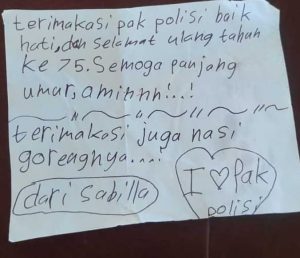 terimakasi pak polisi baik
hati, dan selamat ulang tahun
ke 75. Semoga panjang
umur, aminnn!..!
terimakasi juga nasi
gorengnya....!
dari sabilla
I ♡ pak
polisi